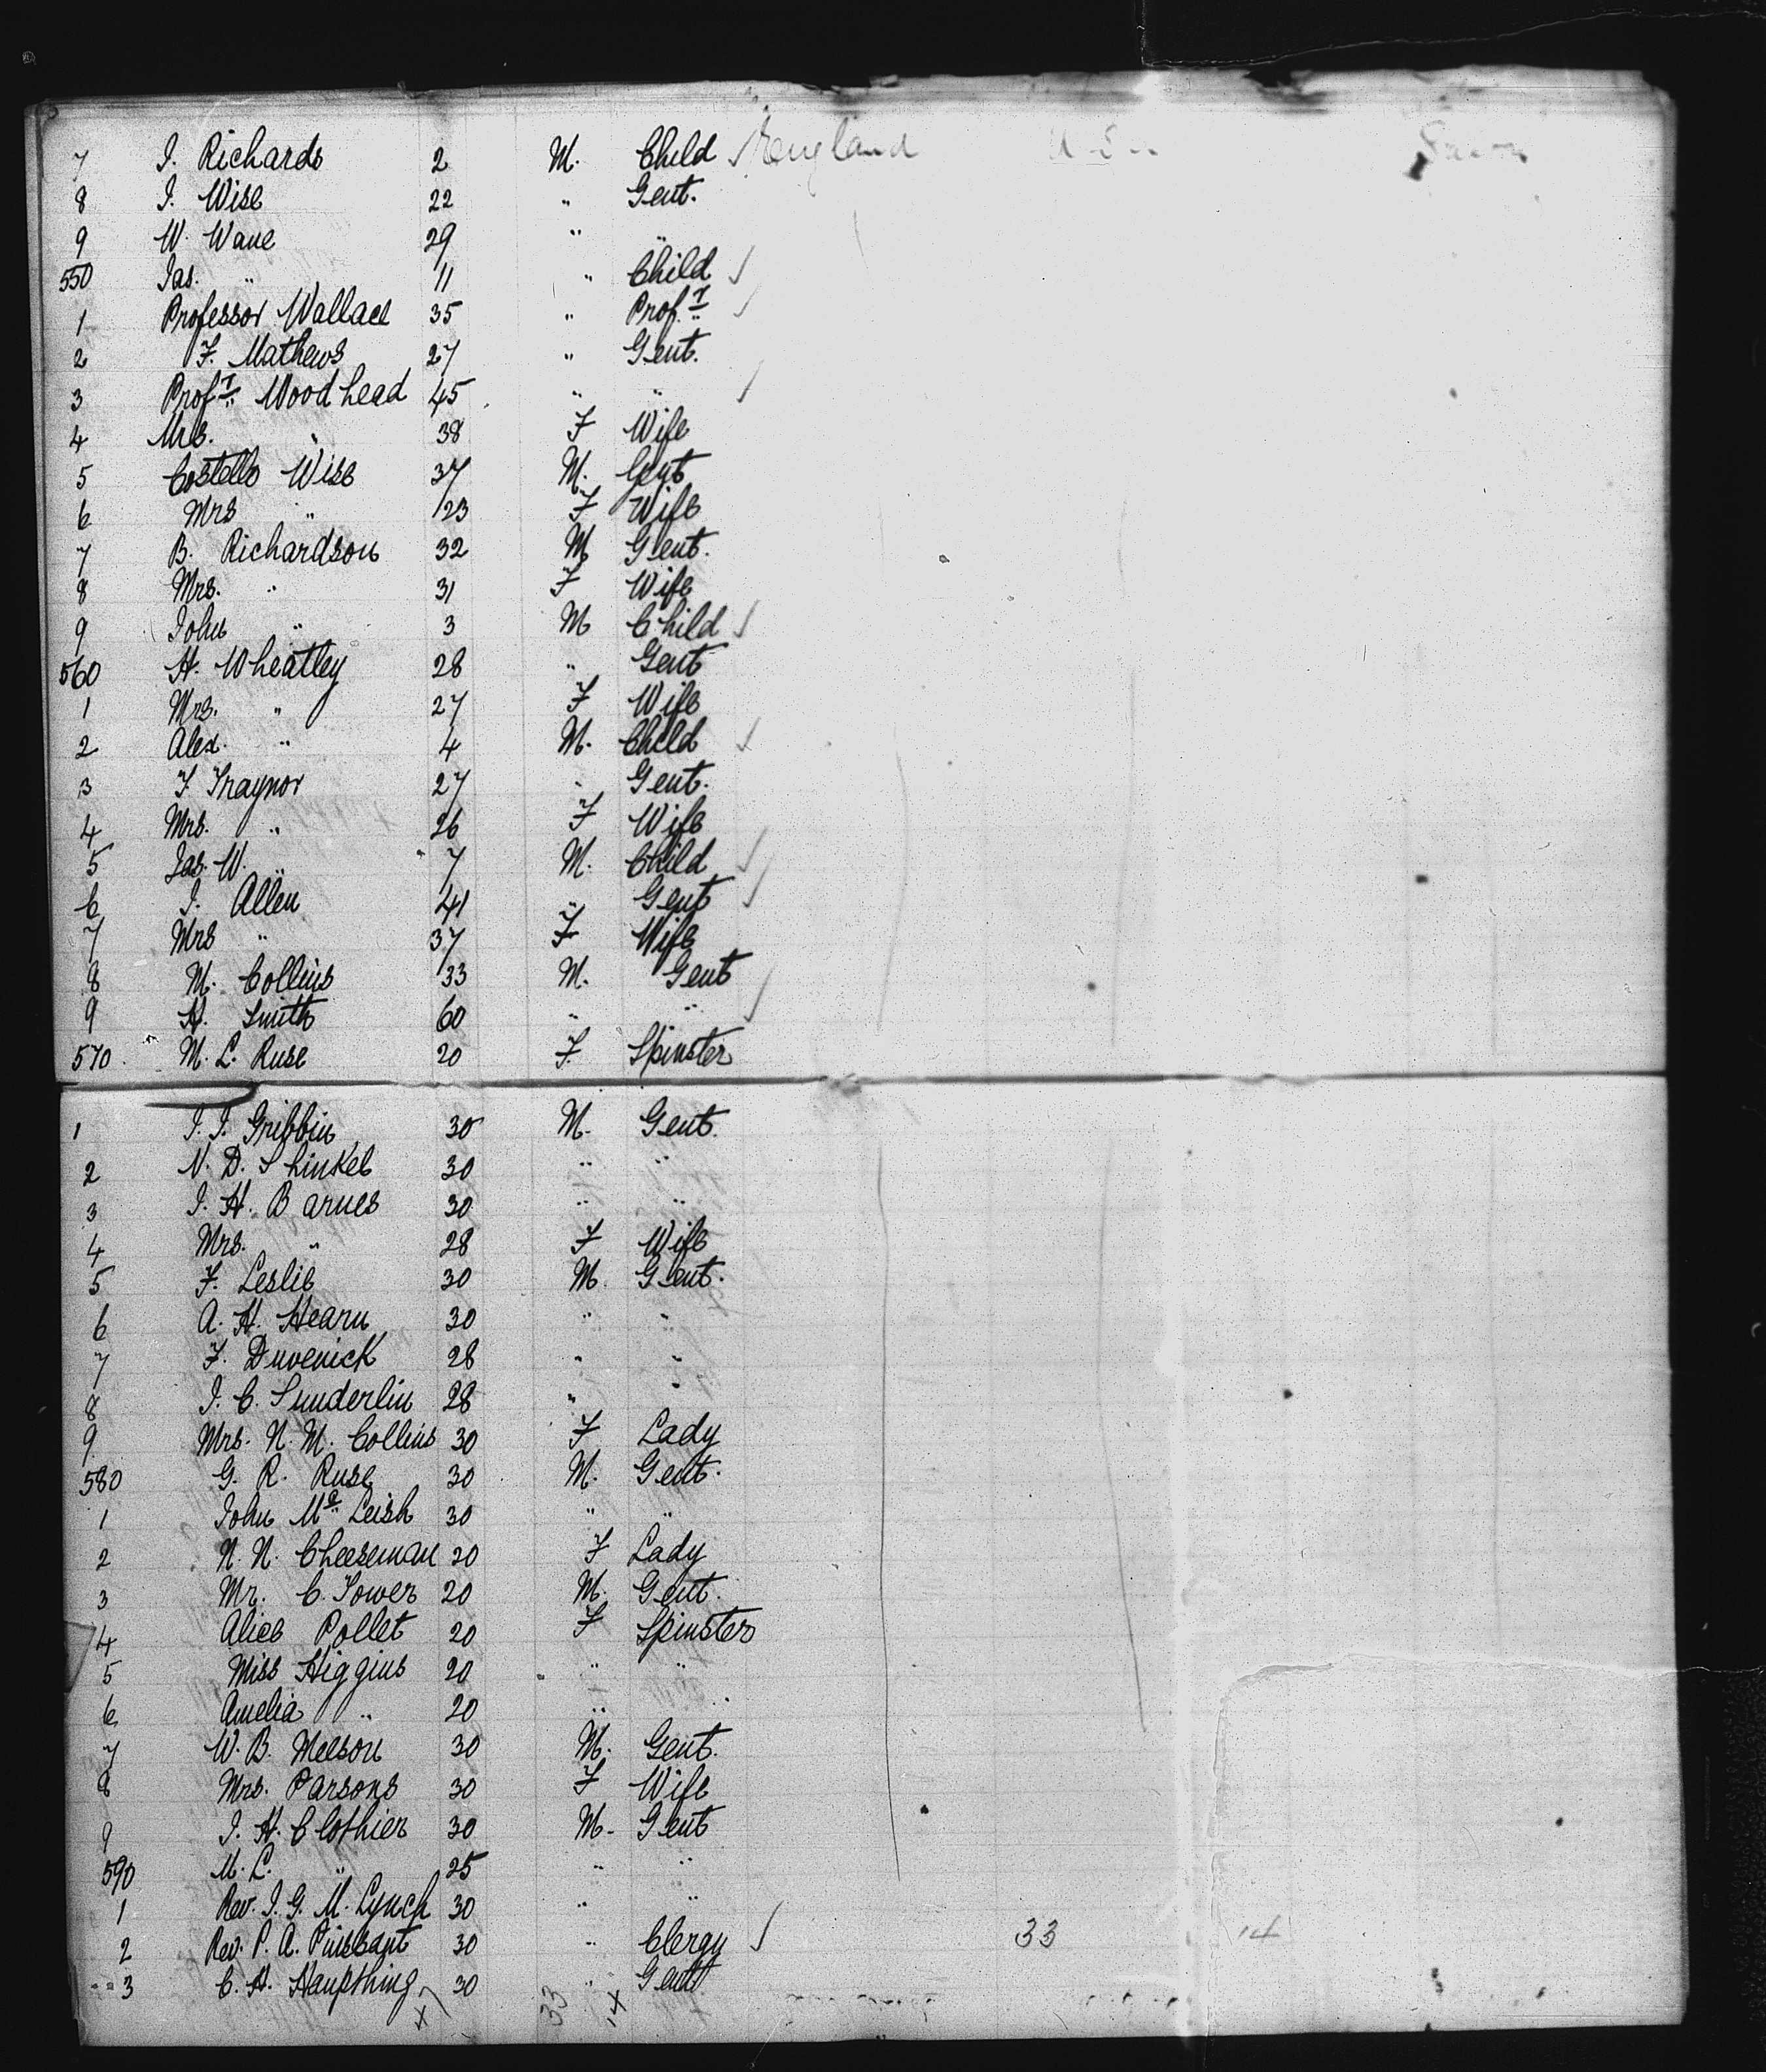 7 J. Richards 2 M. Child ✓ England U.S.
8 J. Wise 22 " Gent.
9 W. Wane 29 " "
550 Jas. " 11 " Child ✓
1 Professor Wallace 35 " Prof.r ✓
2 F. Mathews 27 " Gent.
3 Profr. Woodhead 45 " " ✓
4 Mrs. " 38 F Wife
5 Costello Wise 37 M. Gent
6 Mrs " 23 F Wife
7 B. Richardson 32 M Gent.
8 Mrs. " 31 F Wife
9 John " 3 M Child ✓
560 H. Wheatley 28 " Gent
1 Mrs. " 27 F Wife
2 Alex. " 4 M. Child ✓
3 F. Traynor 27 " Gent.
4 Mrs. " 26 F Wife
5 Jas. W. " 7 M. Child ✓
6 J. Allen 41 " Gent ✓
7 Mrs " 37 F Wife
8 M. Collins 33 M. Gent
9 H. Smith 60 " " ✓
570 M. L. Ruse 20 F. Spinster
1 J. J. Gribbin 30 M. Gent.
2 N. D. Shinkel 30 " "
3 J. H. Barnes 30 " "
4 Mrs. " 28 F Wife
5 F. Leslie 30 M. Gent.
6 A. H. Hearn 30 " "
7 F. Duvenick 28 " "
8 J. C. Sunderlin 28 " "
9 Mrs. N. M. Collins 30 F Lady
580 G. R. Ruse 30 M. Gent.
1 John Mc Leish 30 " "
2 N. N. Cheeseman 20 F Lady
3 Mr. C. Tower 20 M. Gent.
4 Alice Pollet 20 F Spinster
5 Miss Higgins 20 " "
6 Amelia " 20 " "
7 W. B. Meeson 30 M. Gent.
8 Mrs. Parsons 30 F Wife
9 J. H. Clothier 30 M. Gent
590 M. L. " 25 " "
1 Rev. J. G. M. Lynch 30 " "
2 Rev. P. A. Puissant 30 " Clergy ✓ 33 14
3 C. H. Haupthing 30 " Gent
33 14